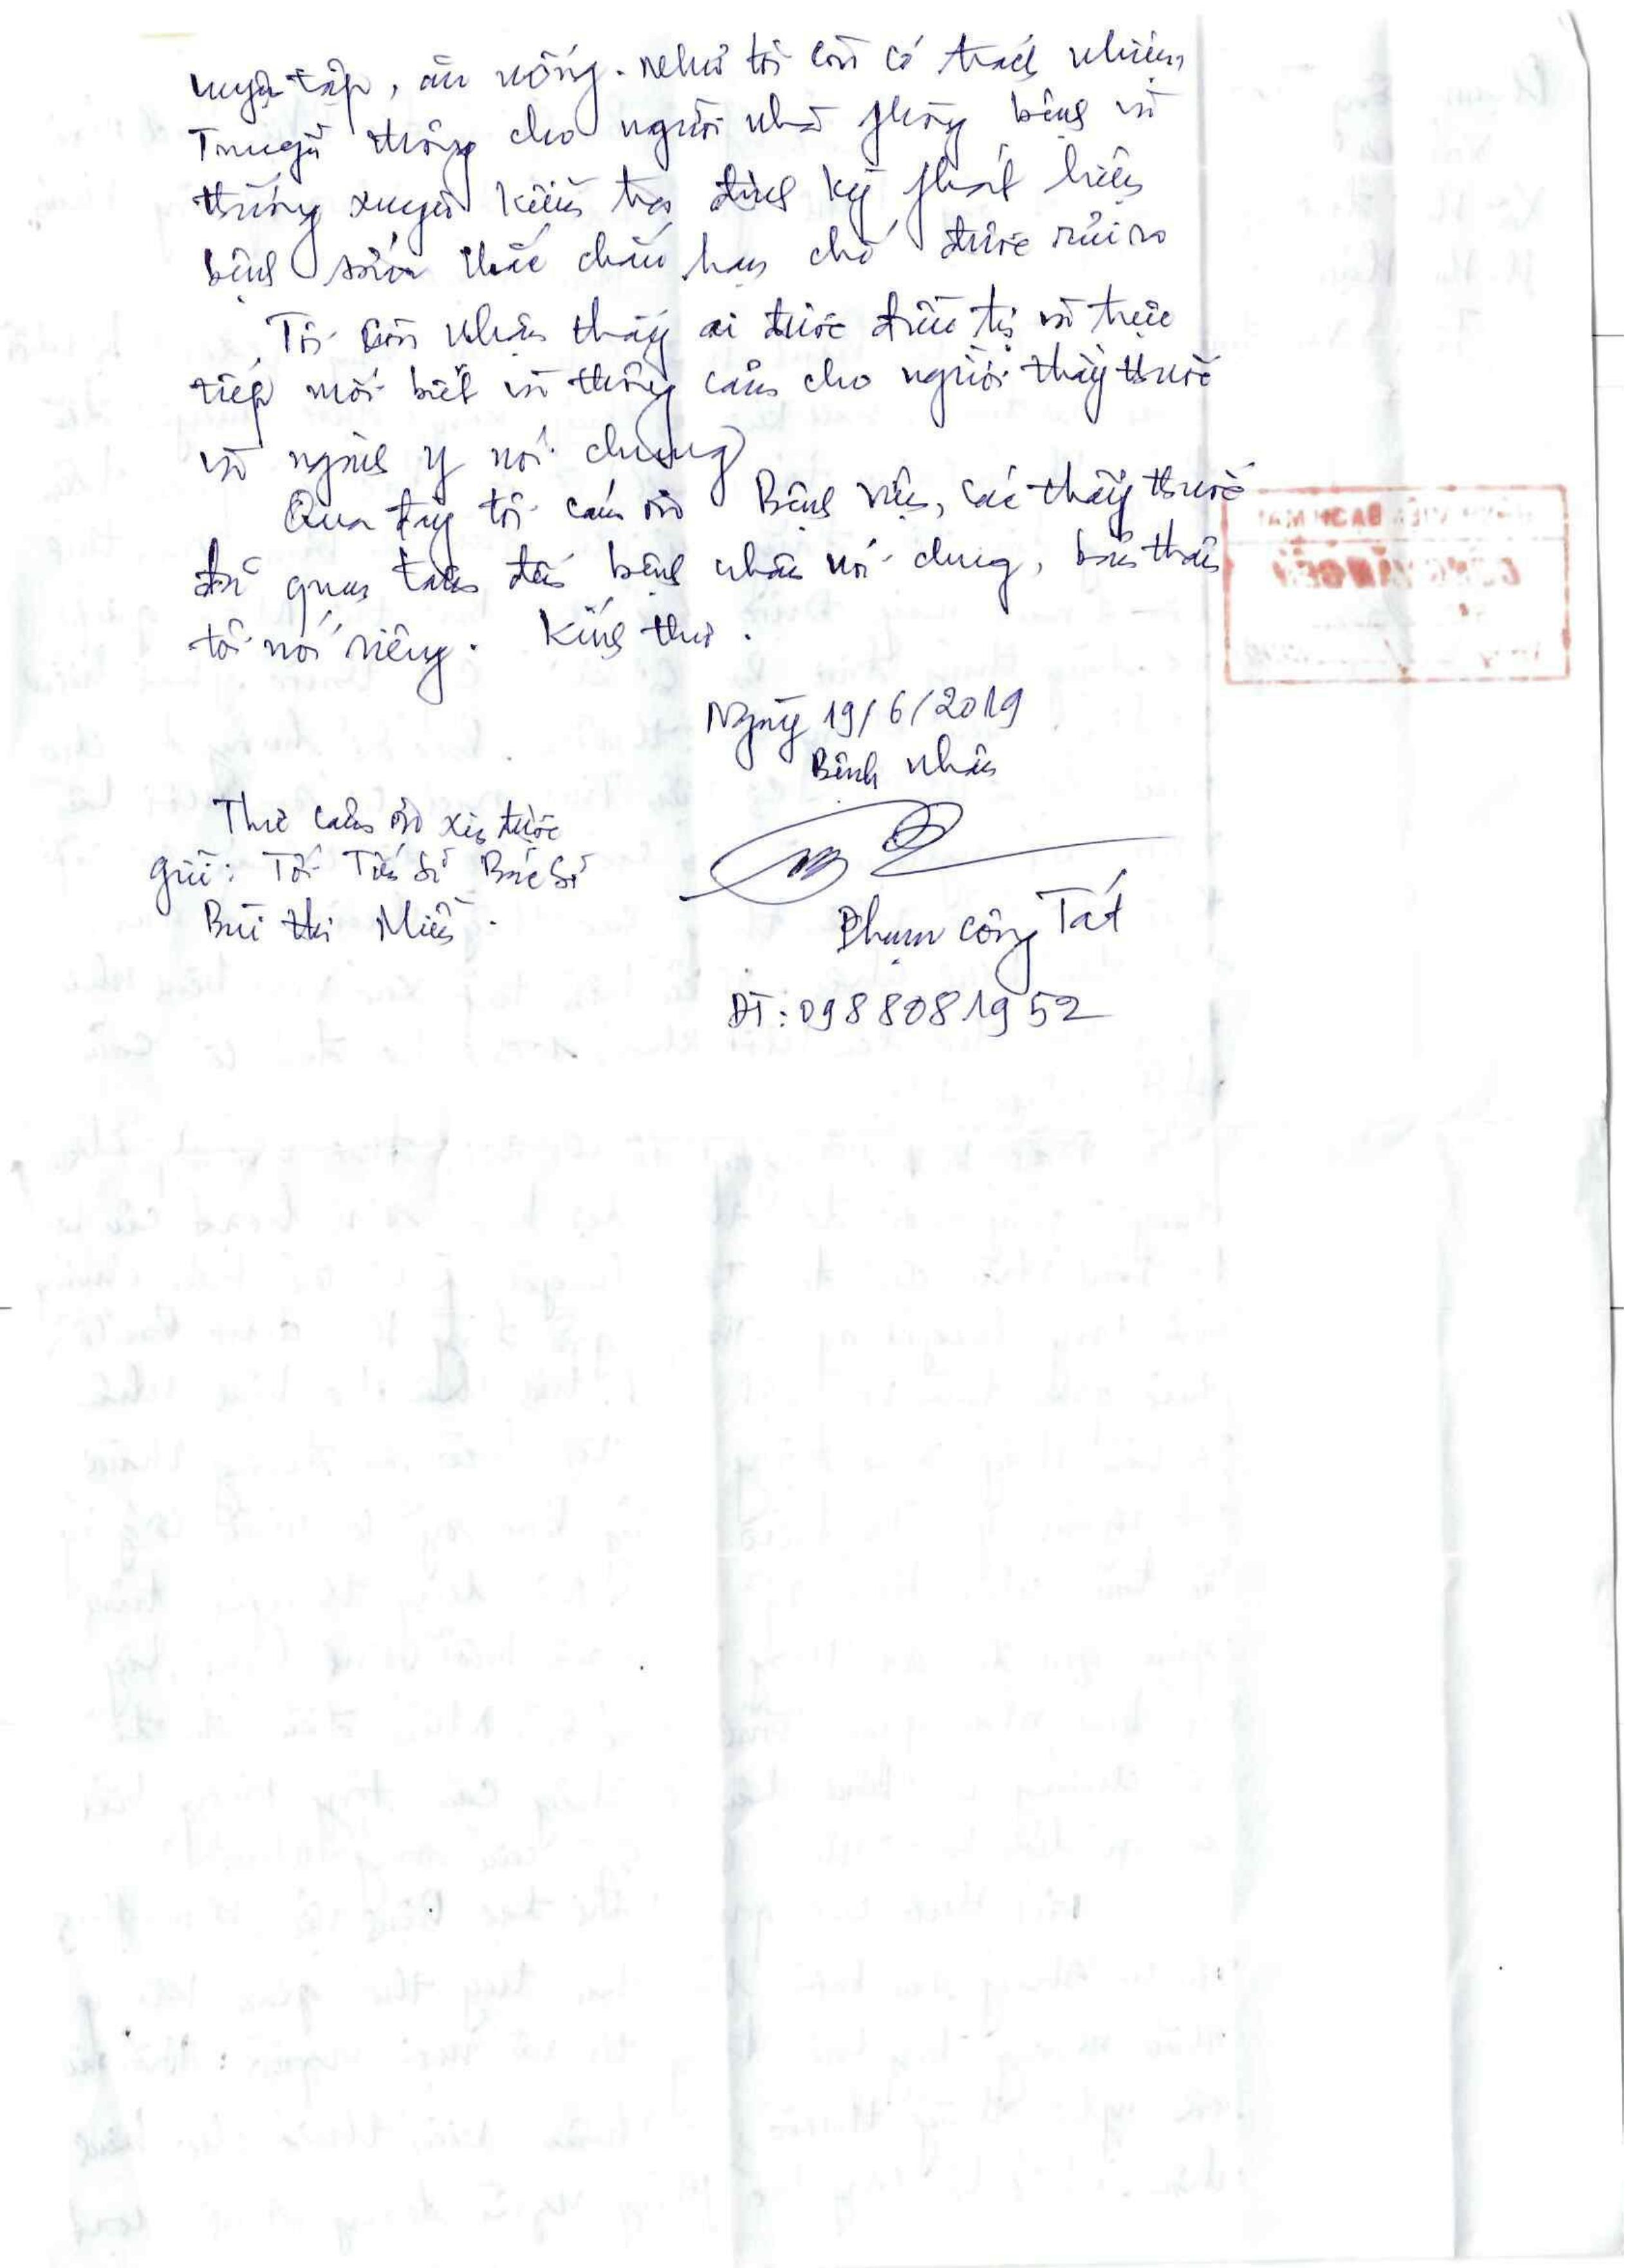 luyện tập, ăn uống. Như tôi còn có trách nhiệm
Truyền thông cho người nhà phòng bệnh và
thường xuyên kiểm tra định kỳ phát hiện
bệnh sớm chắc chắn hạn chế được rủi ro
Tôi còn nhận thấy ai được điều trị và trực
tiếp mới biết và thông cảm cho người thầy thuốc
và ngành y nói chung
Qua đây tôi cảm ơn Bệnh viện, các thầy thuốc
đã quan tâm đến bệnh nhân nói chung, bản thân
tôi nói riêng. Kính thư.
Ngày 19/6/2019
Bệnh nhân
Thư cảm ơn xin được
gửi: Tới Tiến sĩ Bác sĩ
Bùi Thị Miền.
Phạm Công Tất
ĐT: 0988081952